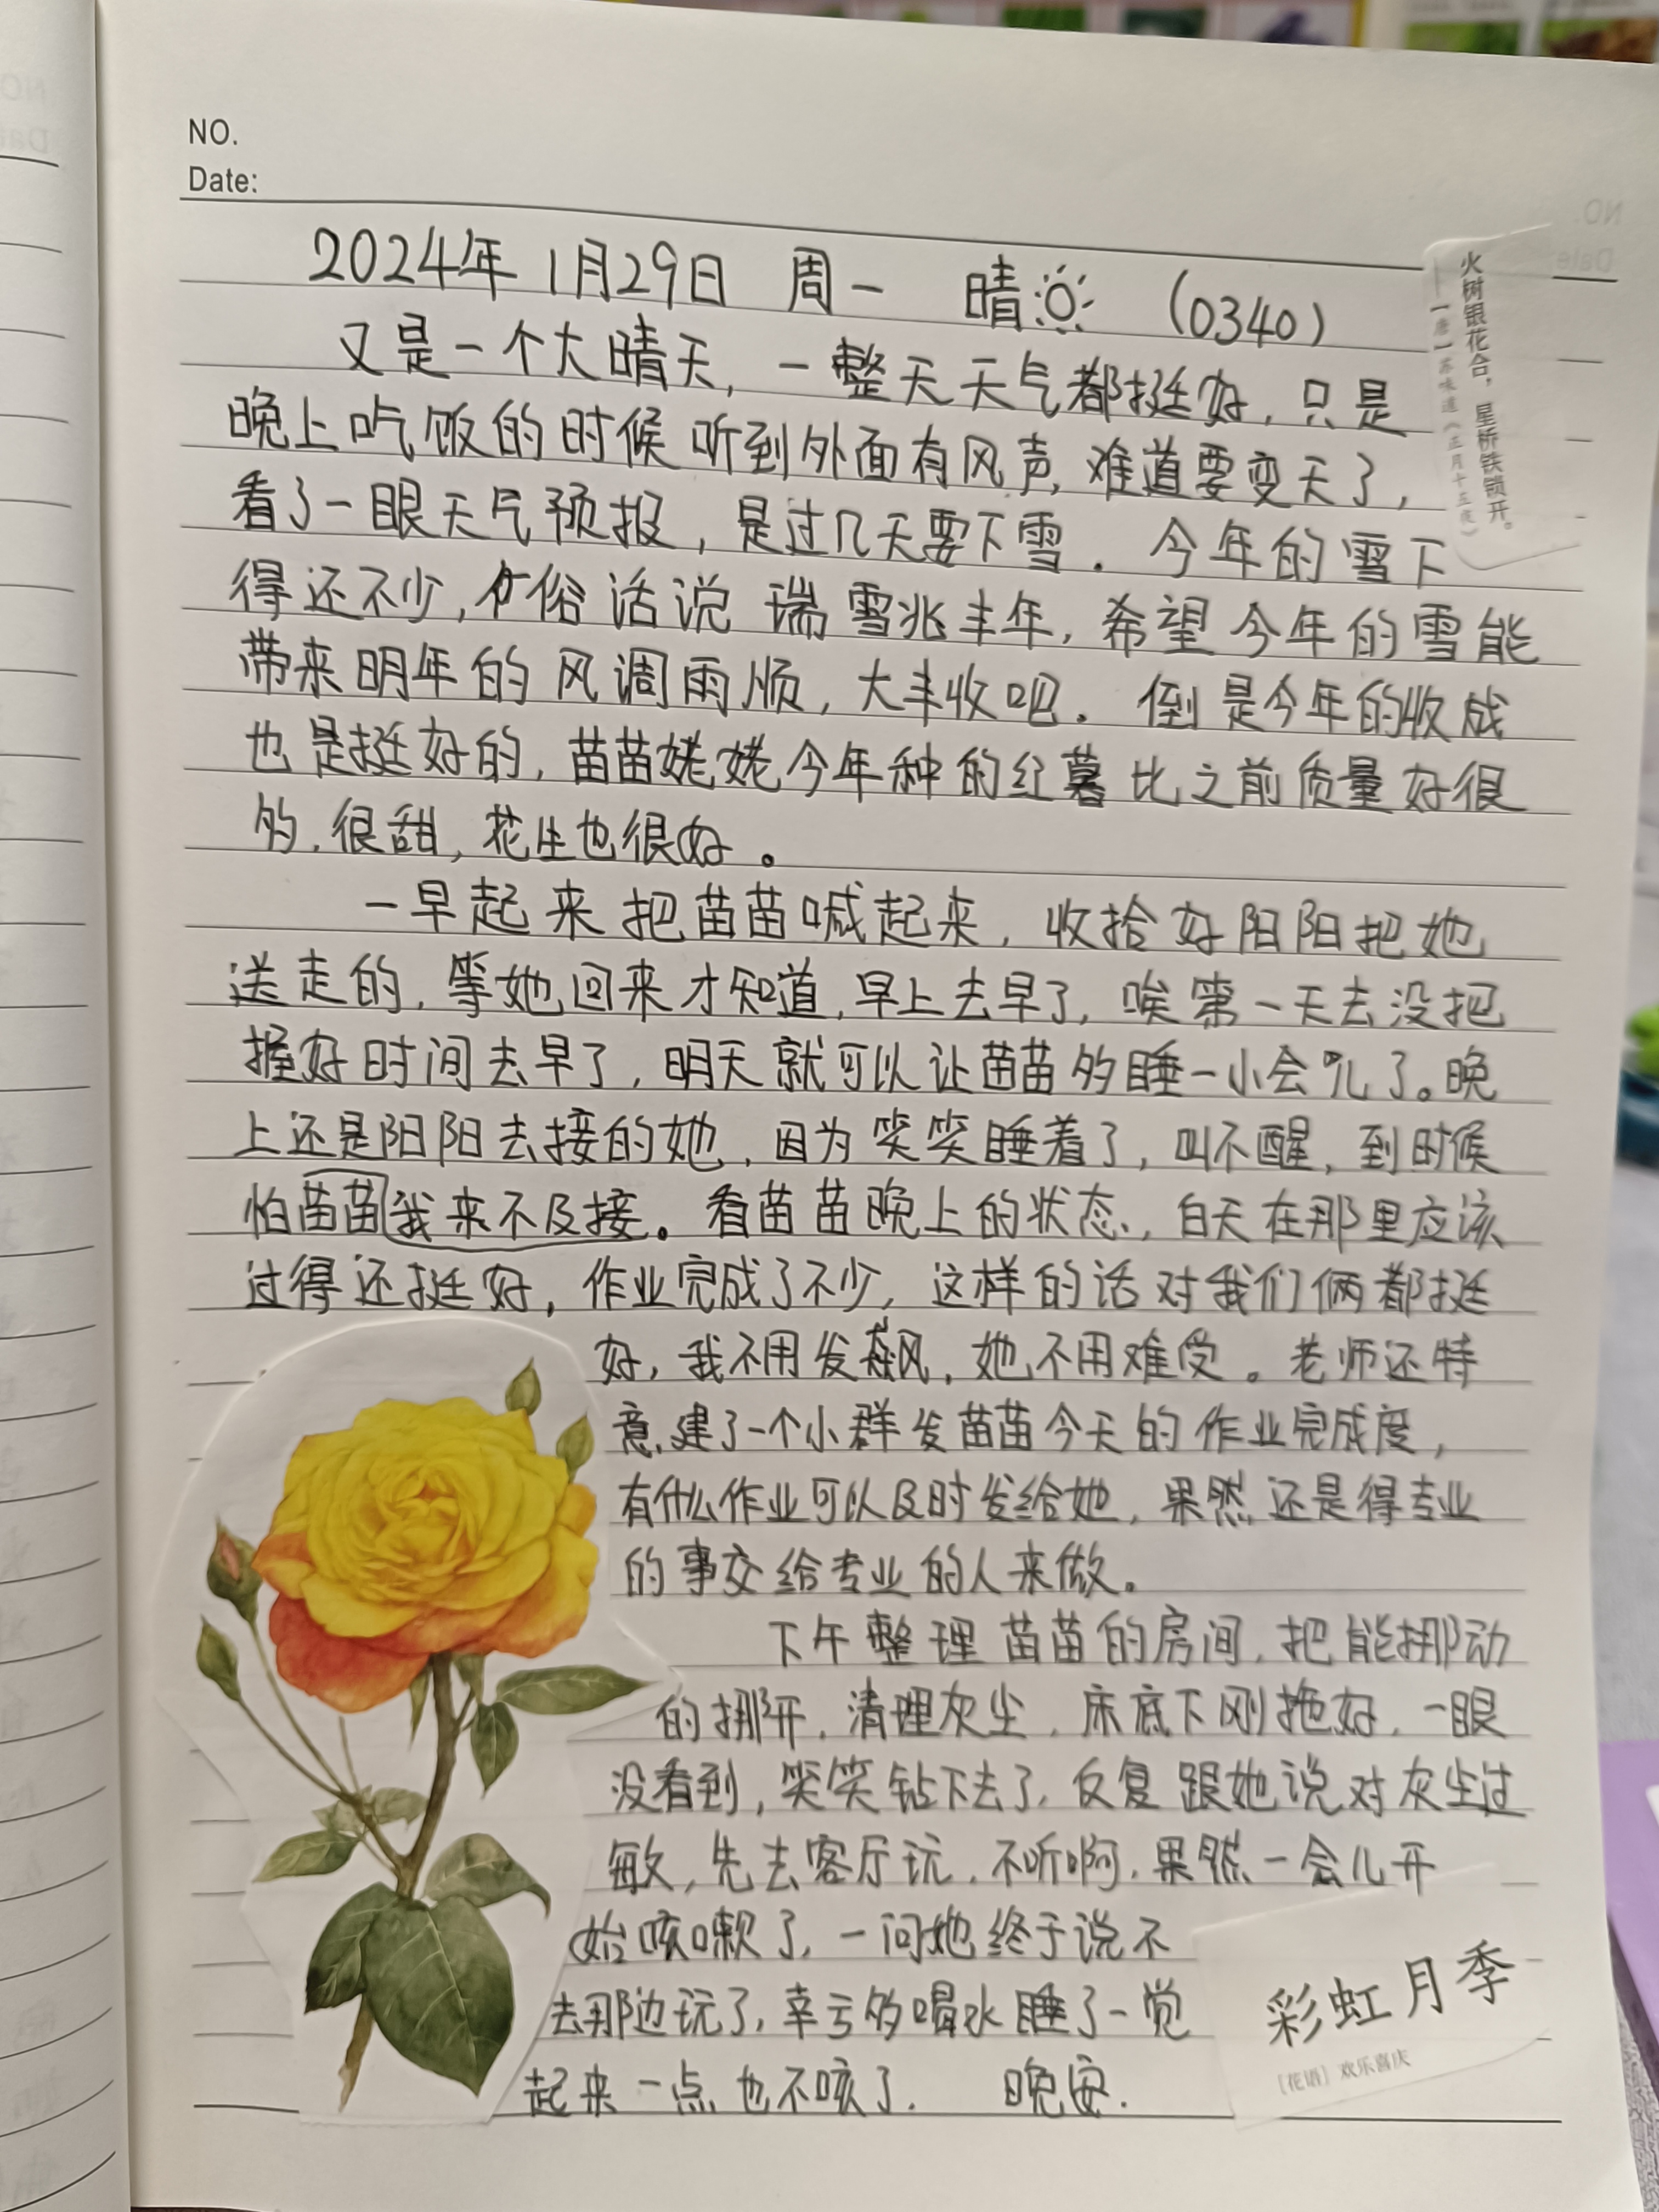 NO.
Date:
2024年 1月29日 周一 晴 (0340)
又是一个大晴天，一整天天气都挺好，只是
晚上吃饭的时候听到外面有风声，难道要变天了，
看了一眼天气预报，是过几天要下雪。今年的雪下
得还不少，俗话说 瑞雪兆丰年，希望今年的雪能
带来明年的风调雨顺，大丰收吧。倒是今年的收成
也是挺好的，苗苗姥姥今年种的红薯比之前质量好很
多，很甜，花生也很好。
一早起来把苗苗喊起来，收拾好阳阳把她
送走的，等她回来才知道，早上去早了，唉第一天去没把
握好时间去早了，明天就可以让苗苗多睡一小会儿了。晚
上还是阳阳去接的她，因为笑笑睡着了，叫不醒，到时候
怕苗苗我来不及接。看苗苗晚上的状态，白天在那里应该
过得还挺好，作业完成了不少，这样的话对我们俩都挺
好，我不用发飙，她不用难受。老师还特
意建了一个小群发苗苗今天的作业完成度，
有什么作业可以及时发给她，果然还是得专业
的事交给专业的人来做。
下午整理苗苗的房间，把能挪动
的挪开，清理灰尘，床底下刚拖好，一眼
没看到，笑笑钻下去了，反复跟她说对灰尘过
敏，先去客厅玩，不听啊，果然一会儿开
始咳嗽了，一问她终于说不
去那边玩了，幸亏多喝水睡了一觉
起来一点也不咳了。 晚安。
火树银花合，星桥铁锁开。
——［唐］苏味道《正月十五夜》
彩虹月季
［花语］欢乐喜庆